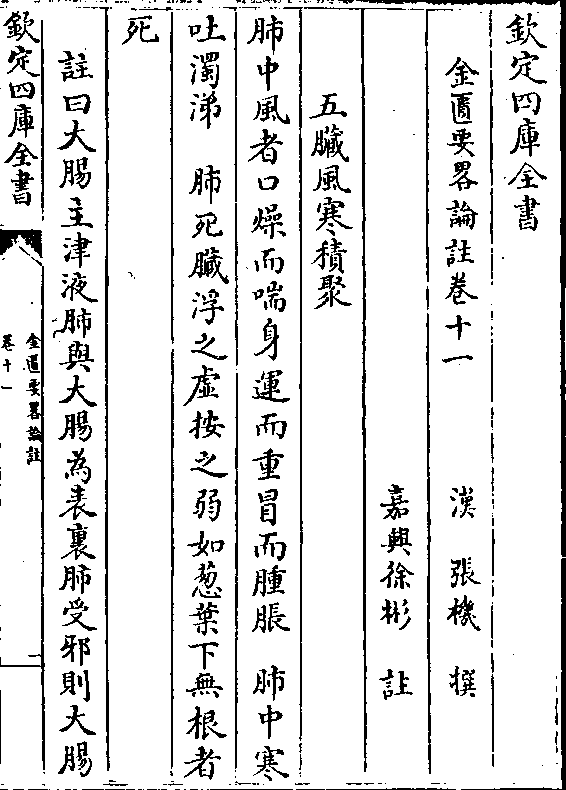 欽定四庫全書
金匱要畧論註卷十一
漢 張機 撰
嘉興徐彬 註
五臟風寒積聚
肺中風者口燥而喘身運而重冒而腫脹 肺中寒
吐濁涕 肺死臟浮之虛按之弱如葱葉下無根者
死
註曰大腸主津液肺與大腸為表裏肺受邪則大腸
欽定四庫全書
金匱要畧論註
卷十一
一